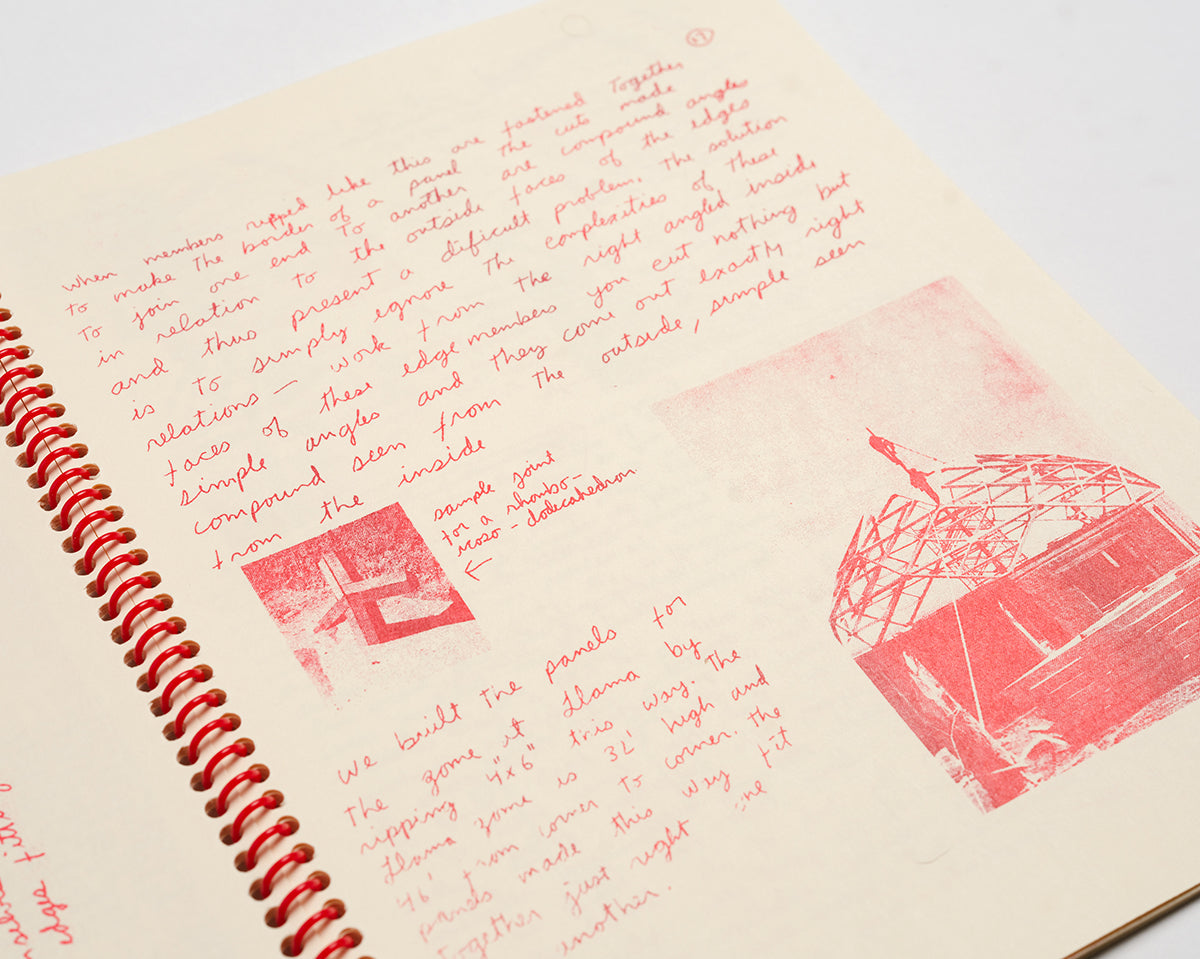 when members ripped like this are fastened Together
to make The border of a panel The cuts made
To join one end To another are compound angles
in relation to the outside faces of the edges
and thus present a dificult problem. The solution
is To simply egnore The complexities of These
relations — work from the right angled inside
faces of these edge members you cut nothing but
simple angles and they come out exactly right
compound seen from The outside, simple seen
from the inside
sample joint
for a rhombo-
icoso-dodecahedron
we built the panels for
The zome at Llama by
ripping 4"x6" this way. The
Llama zome is 32' high and
46' from corner to corner. The
panels made this way fit
together just right one
another.
edge